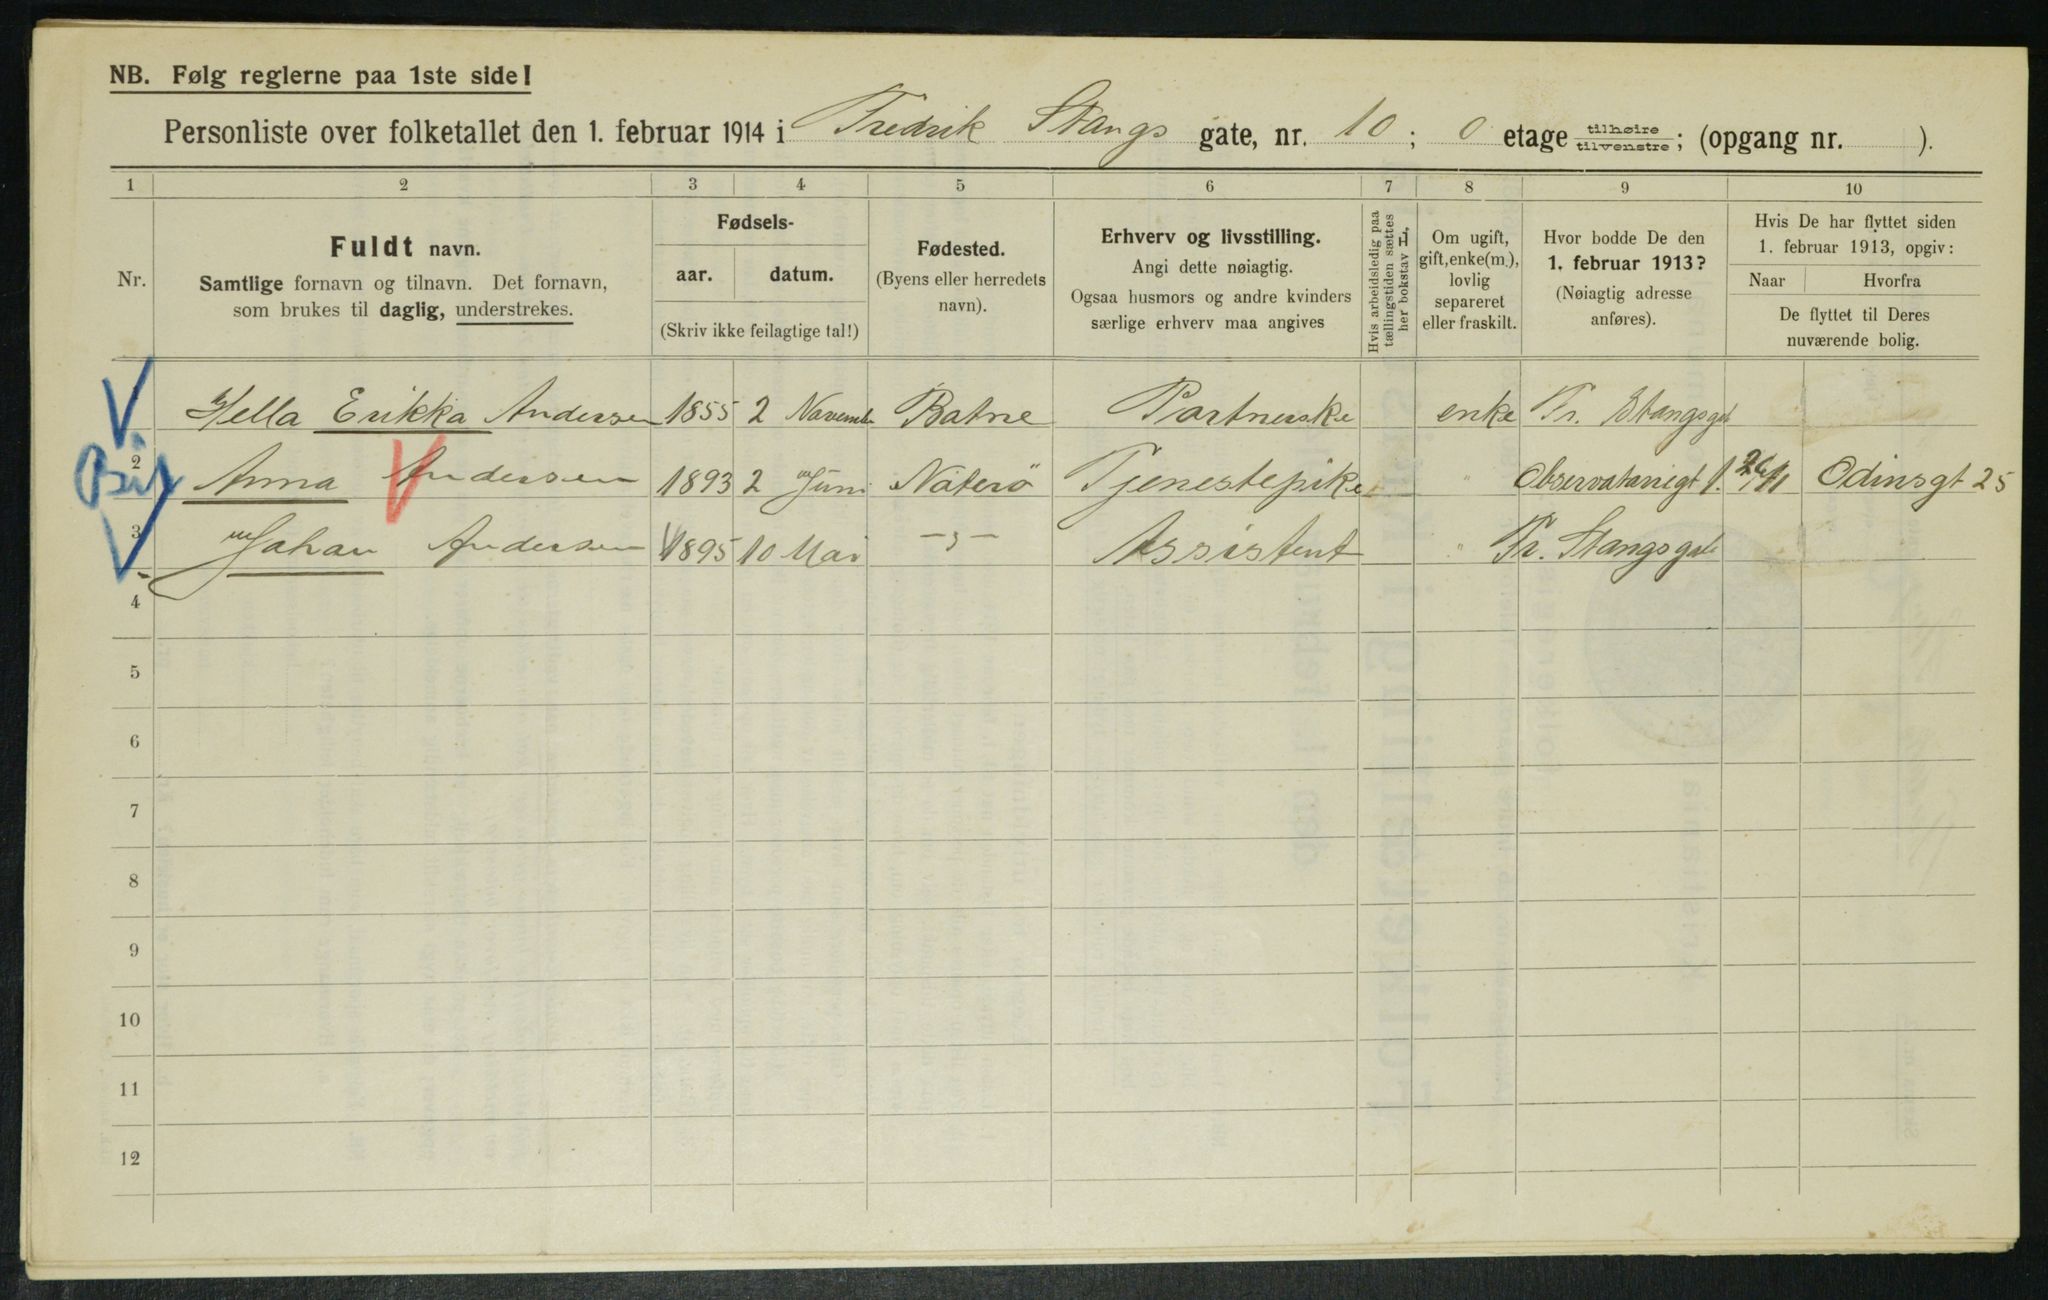 NB. Følg reglerne paa 1ste side!
Personliste over folketallet den 1. februar 1914 i Fredrik Stangs gate, nr. 10; 0 etage tilhøire tilvenstre; (opgang nr. ).
1 2 3 4 5 6 7 8 9 10
Nr.
Fuldt navn.
Samtlige fornavn og tilnavn. Det fornavn,
som brukes til daglig, understrekes.
Fødsels-
aar. datum.
(Skriv ikke feilagtige tal!)
Fødested.
(Byens eller herredets
navn).
Erhverv og livsstilling.
Angi dette nøiagtig.
Ogsaa husmors og andre kvinders
særlige erhverv maa angives
Hvis arbeidsledig paa
tællingstiden sættes
her bokstav L,
Om ugift,
gift, enke(m.),
lovlig
separeret
eller fraskilt.
Hvor bodde De den
1. februar 1913?
(Nøiagtig adresse
anføres).
Hvis De har flyttet siden
1. februar 1913, opgiv:
Naar Hvorfra
De flyttet til Deres
nuværende bolig.
1 Hella Erikka Andersen 1855 2 November Botne Portnerske enke Fr. Stangsgt
2 Anna Andersen 1893 2 Juni Nøterö Tjenestepike " Observatoriegt 1. 26/11 Odinsgt 25
3 Johan Andersen 1895 10 Mai -"- Assistent " Fr. Stangsgate
4
5
6
7
8
9
10
11
12